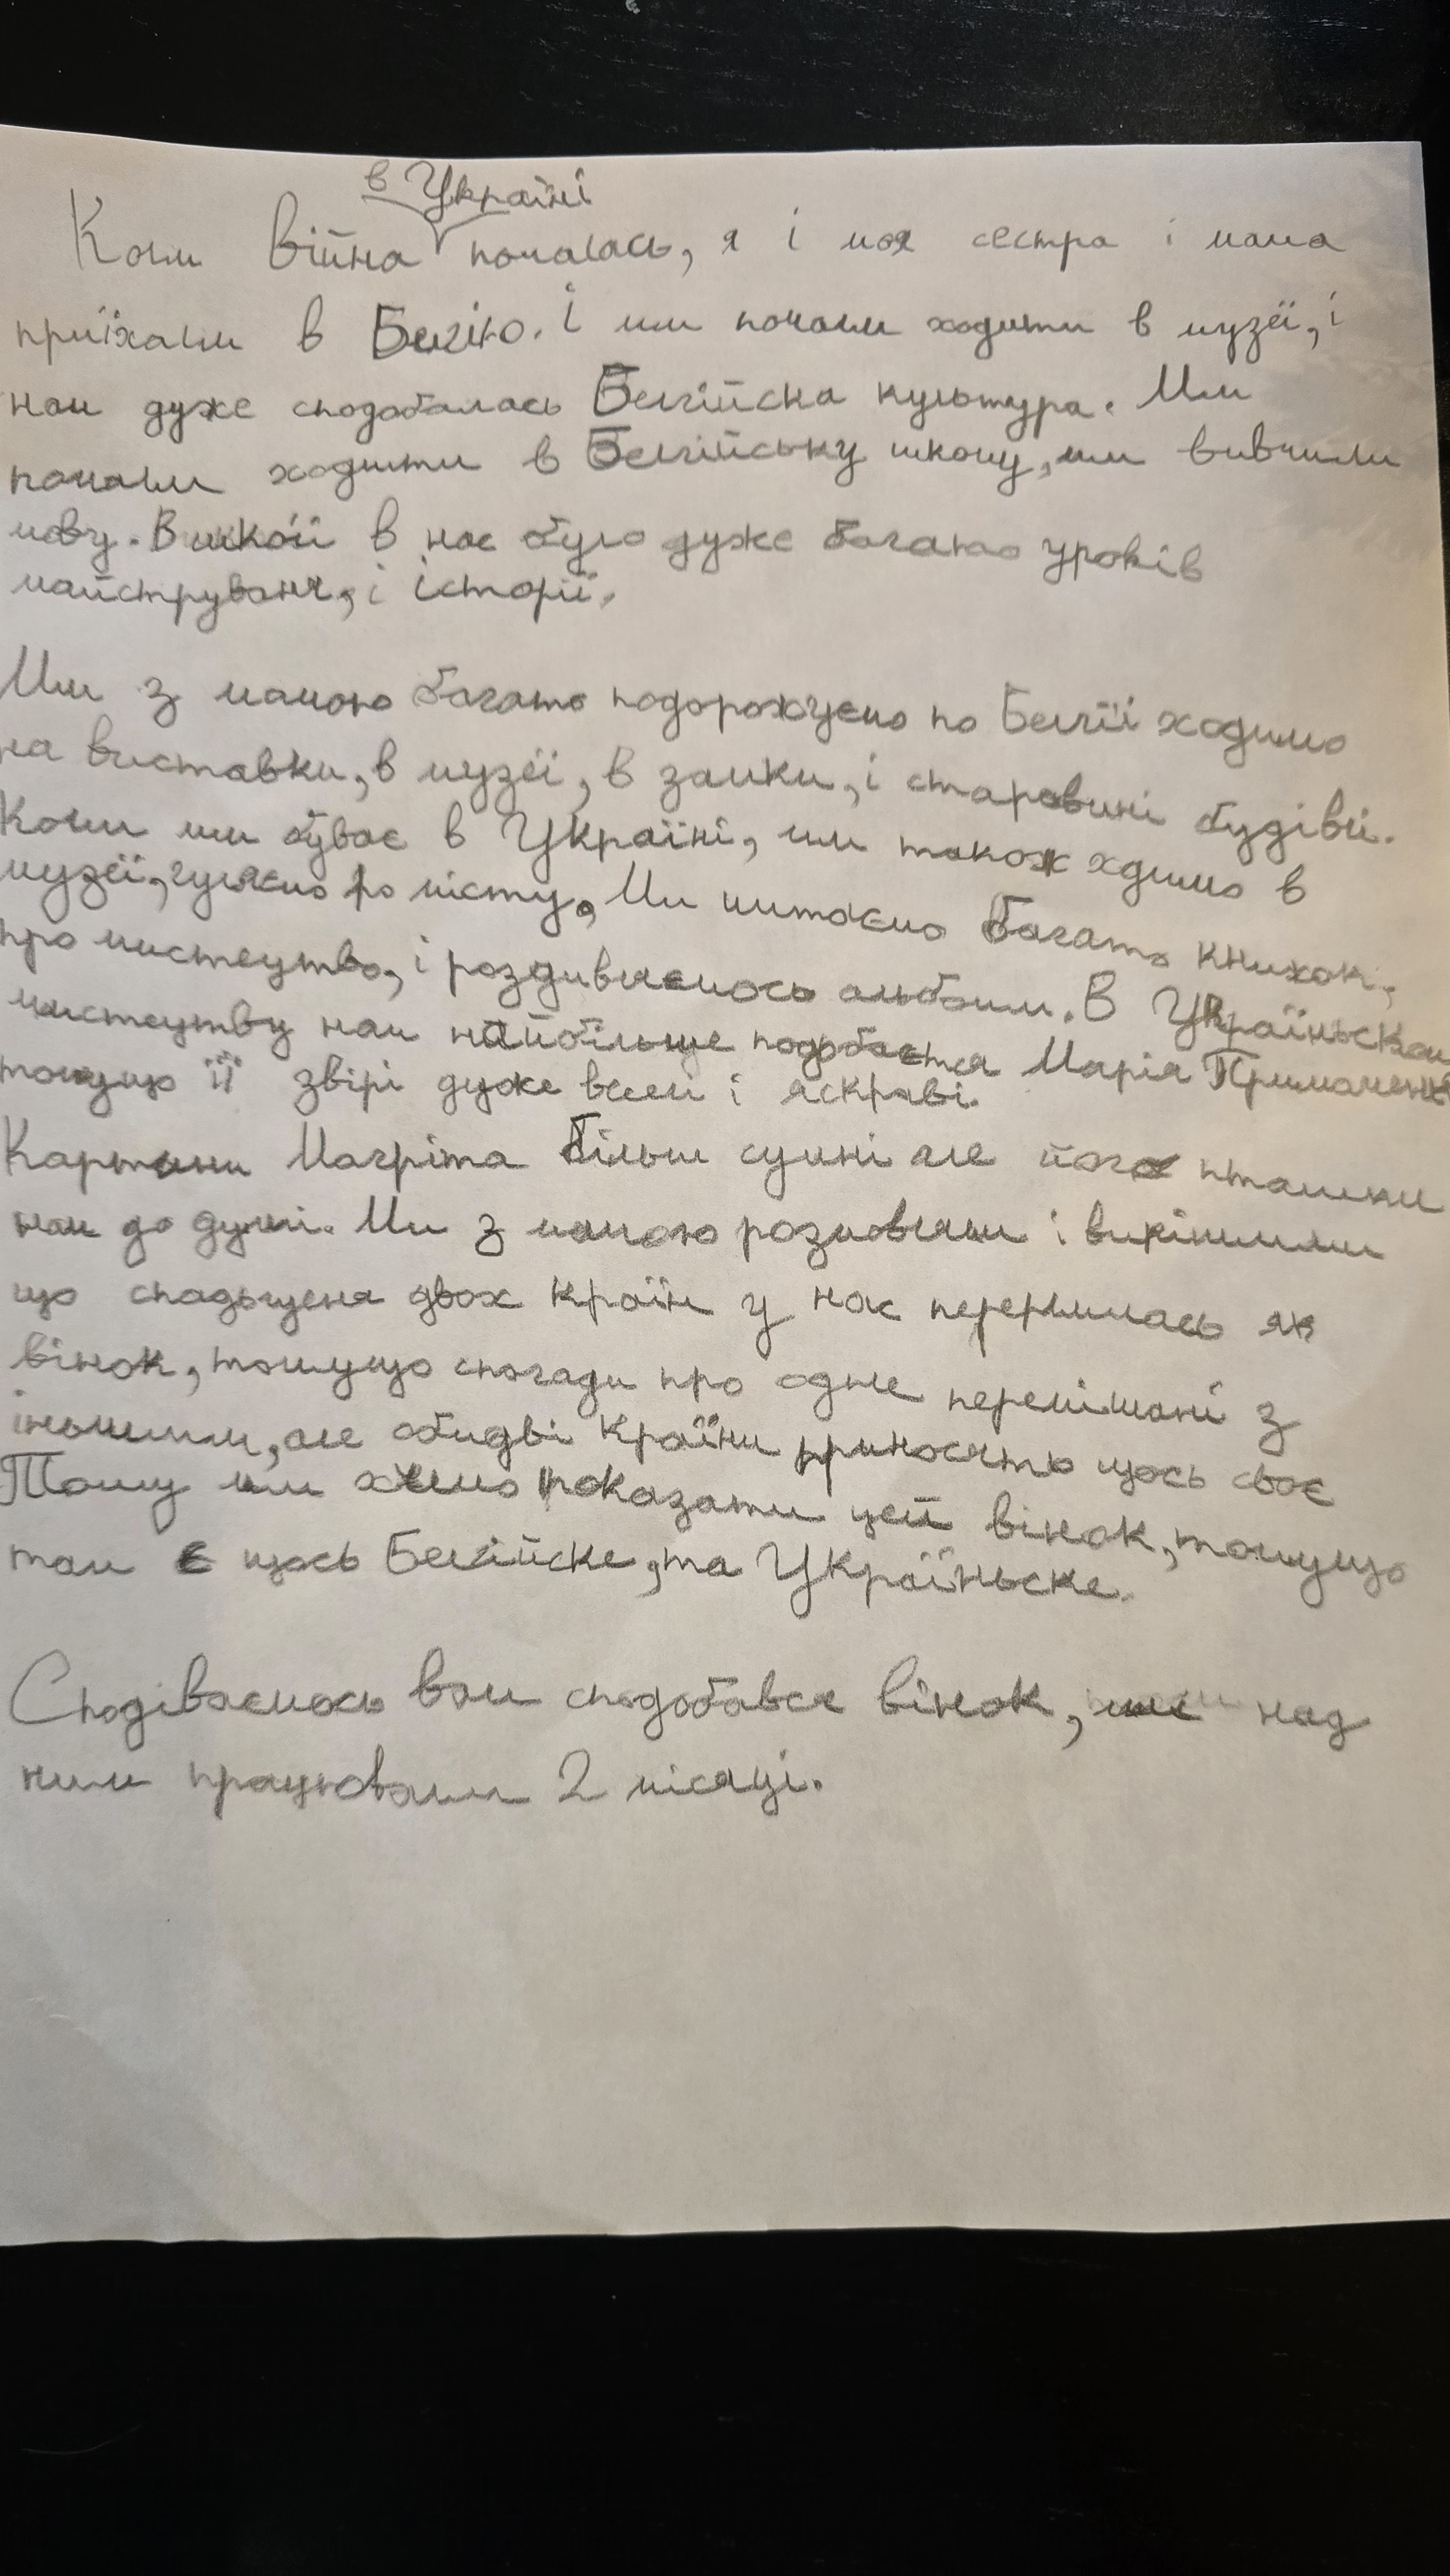 в Україні
Коли війна почалась, я і моя сестра і мама
приїхали в Белгію. І ми почали ходити в музеї, і
нам дуже сподобалась Белгійска культура. Ми
почали ходити в Белгійську школу, ми вивчили
мову. В шкой в нас було дуже багато уроків
майструваня, і історії.
Ми з мамою багато подорожуємо по Белгії ходимо
на виставки, в музеї, в замки, і старовині будівлі.
Коли ми буває в Україні, ми також ходимо в
музеї, гуляємо по місту. Ми читаємо багато книжок,
про мистецтво, і роздивляємось альбоми. В Українськом
мистецтву нам найбільше подобається Марія Примаченко
томущо її звірі дуже веселі і яскраві.
Картини Магріта більш сумні але його пташки
нам до душі. Ми з мамою розмовляли і вирішили
що спадьщеня двох країн у нас переплилась як
вінок, томущо спогади про одне перемішані з
іньшими, але обидві країни приносять щось своє
Тому ми хчемо показати цей вінок, томущо
там є щось Белгійске, та Україньске.
Сподіваємось вам сподобався вінок, ми над
ним працювали 2 місяці.